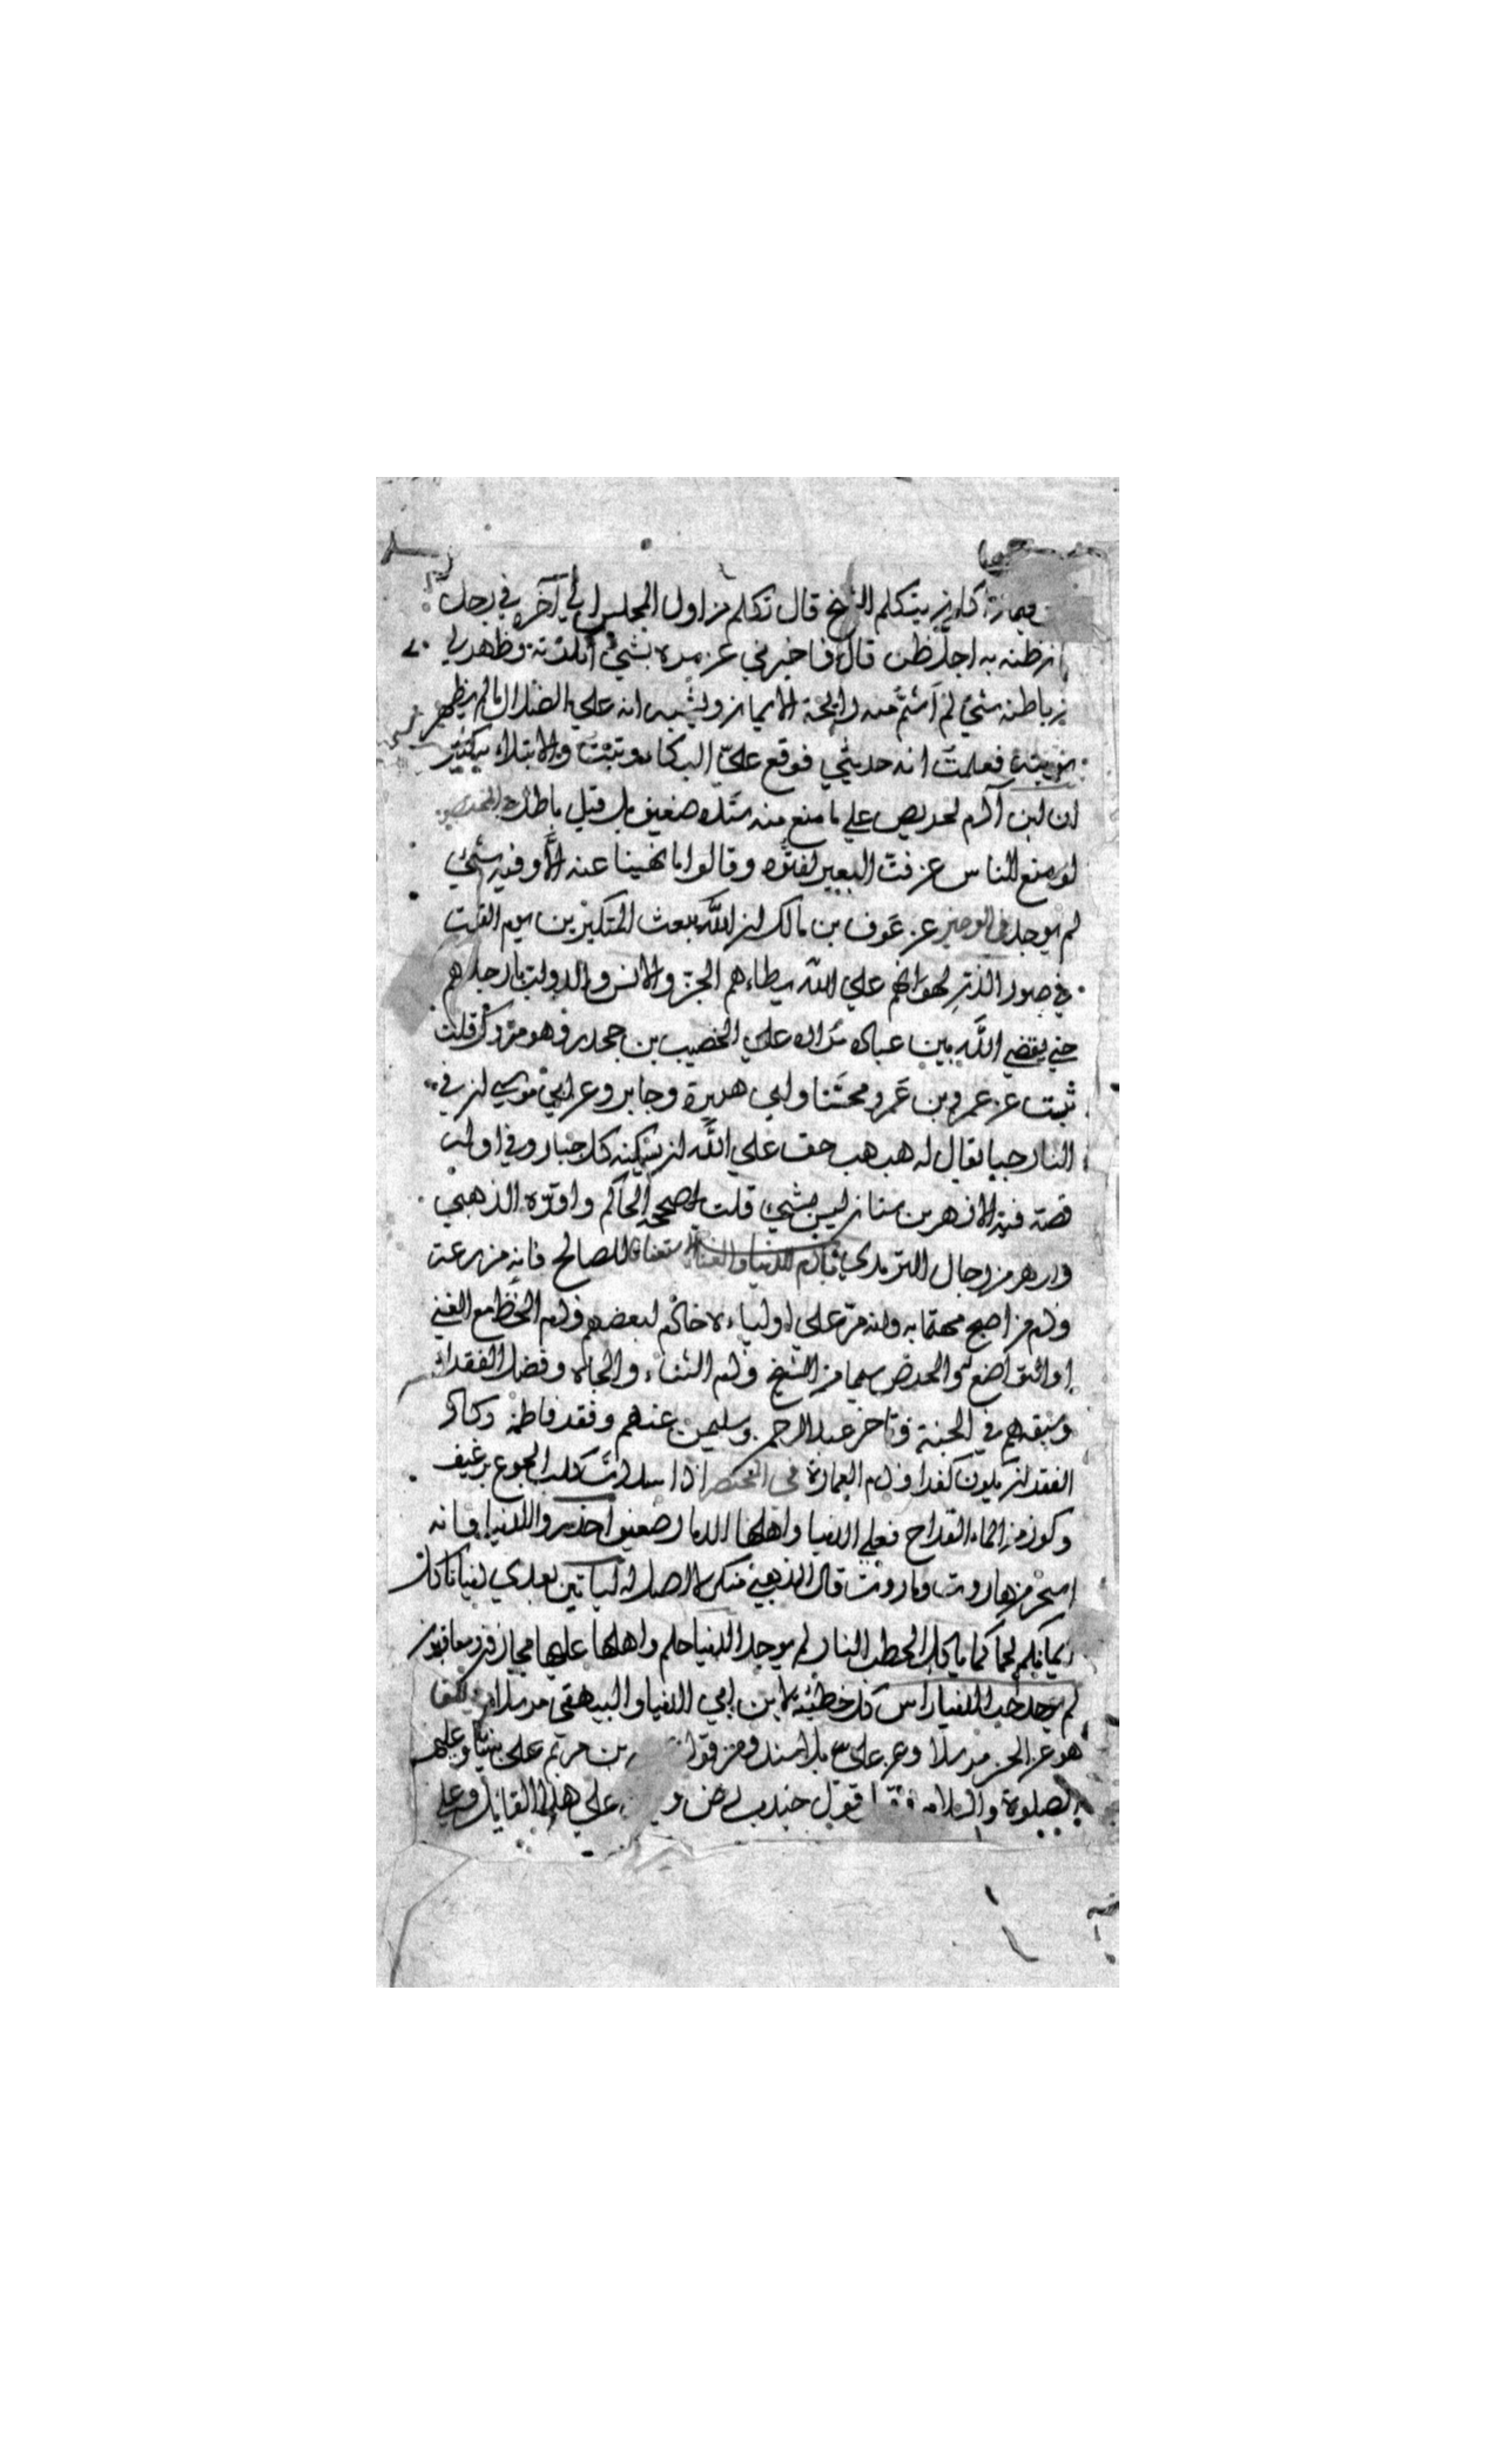 فيماذا كان يتكلم الشيخ قال تكلم من اول المجلس الي آخره في رجل
ان ظننه به اجل ظن قال فاخبرني عن مرة بشئ انكرته وظهر لي
من باطنه شئ لم اشم منه رايحة الايمان ويشبه انه علي الضلال ما لم يظهر
توبته فعلمت انه حديثي فوقع علي البكاء وتبت والابتلاء بكثير
ان ابن آدم لحريص علي ما منع منه سنده ضعيف بل قيل باطل في المختصر
لو منع الناس عن فت البعير لفتوه وقالوا ما نهينا عنه الا وفيه شئ
لم يوجد في الوجيز عن عوف بن مالك ان الله يبعث المتكبرين يوم القيمة
في صور الذر لهوانهم علي الله يطاءهم الجن والانس والدواب بارجلهم
حتي يقضي الله بين عباده مداره علي الخصيب بن جحدر وهو متروك قلت
ثبت عن عمرو بن عمرو محسنا وابي هريرة وجابر وعن ابي موسي ان في
النار جبا يقال له هبهب حق علي الله ان يسكنه كل جبار وفي اوله
قصة فيه الازهر بن سنان ليس بشئ قلت صححه الحاكم واقره الذهبي
وازهر من رجال الترمذي في ذم الدنيا والغناء الا استغناء للصالح فانه مزرعة
وذم من اصبح مهتما به وانه مر علي اولياءه خاكم لبعضهم وذم الحظ مع الغني
او التواضع له والحرص سيما من الشيخ وذم الثناء والجاه وفضل الفقراء
وسبقهم في الجنة وتاخر عبد الرحمن وسليمن عنهم وفقد فاطمة وكاد
الفقر ان يكون كفرا وذم العمارة في المختصر اذا سددت كلب الجوع برغيف
وكوز من الماء القراح فعلي الدنيا واهلها الدمار ضعيف احذروا الدنيا فانه
اسحر من هاروت وماروت قال الذهبي منكر لا اصل له لياتين بعدي دنيا تاكل
ايمانكم لحما كما ياكل الحطب النار لم يوجد الدنيا حلم واهلها عليها مجازون ومعاقبون
لم يوجد حب الدنيا راس كل خطيئة لابن ابي الدنيا والبيهقي مرسلا
هو عن الحسن مرسلا وعن علي رض بلا سند ومن قول بن مريم علي نبينا وعليه
الصلوة والسلام قول جندب رض علي هذا القايل وعلي